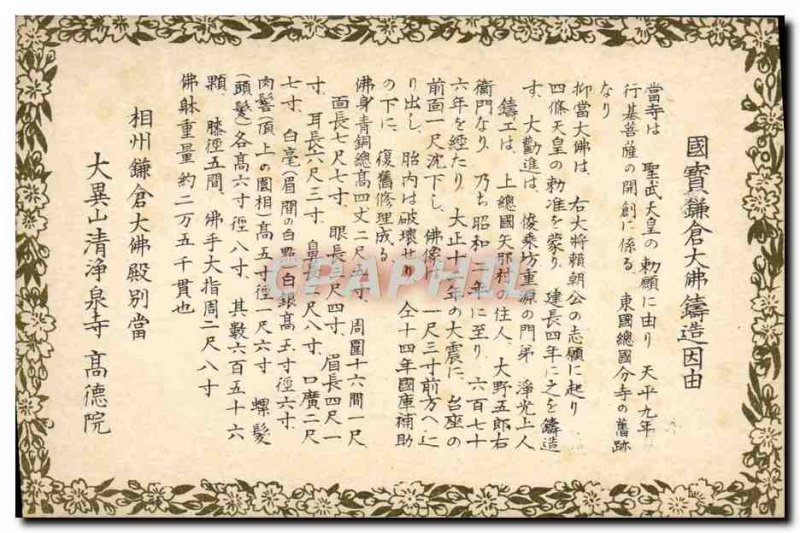 國寶鎌倉大佛鑄造因由
當寺は 聖武天皇の勅願に由り 天平九年
行基菩薩の開創に係る 東國總國分寺の舊跡
なり
抑當大佛は、右大將賴朝公の志願に起り
四條天皇の勅准を蒙り 建長四年に之を鑄造
す、大勸進は、俊乘坊重源の門弟 淨光上人
鑄工は、上總國矢那村の住人、大野五郎右
衞門なり 乃ち昭和二年に至り 六百七十
六年を經たり、大正十二年の大震に、台座の
前面一尺沈下し、佛像は 一尺三寸前方へ辷
り出し、胎内は破壞せり 仝十四年國庫補助
の下に、復舊修理成る
佛身靑銅總高四丈二尺五寸 周圍十六間一尺
面長七尺七寸、眼長三尺四寸、眉長四尺一
寸、耳長六尺三寸、鼻長二尺八寸、口廣二尺
七寸、白毫(眉間の白點)白銀高五寸徑六寸、
肉髻(頂上の圓相)高五寸徑一尺六寸 螺髮
(頭髮)各高六寸徑八寸、其數六百五十六
顆、膝徑五間、佛手大指周二尺八寸
佛躰重量約二万五千貫也
相州鎌倉大佛殿別當
大異山清淨泉寺 高德院
CPAPHIL